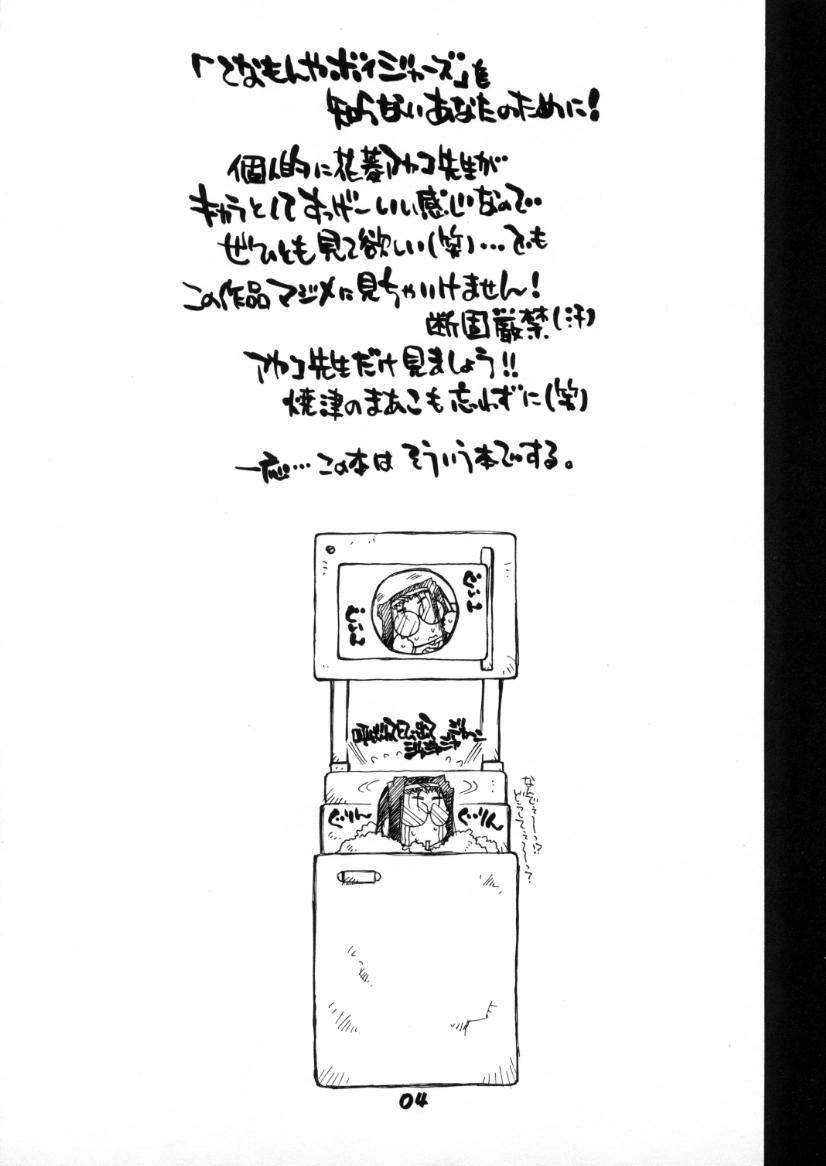 「てなもんやボイジャーズ」を
知らないあなたのために!
個人的に花菱アヤコ先生が
キャラとしてすっげーいい感じなので‥
ぜひとも見て欲しい(笑)…でも
この作品マジメに見ちゃいけません!
断固厳禁(汗)
アヤコ先生だけ見ましょう!!
焼津のまあこも忘れずに(笑)
一応…この本はそういう本でする。
ぐぃん
ぐぃん
呼ばれてとび出て
ジャジャジャジャーン
ぐりん
ぐりん
なんでぇ〜〜っ!?
どぉしてぇ〜〜っ?
04